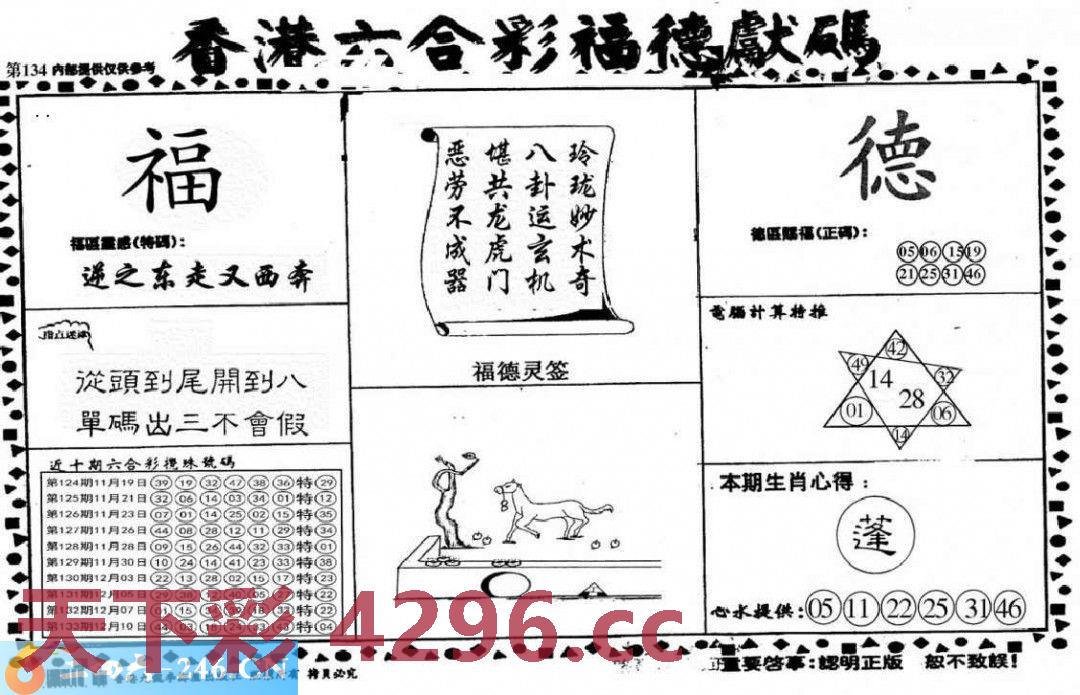 香港六合彩福德獻碼
第134 內部提供仅供参考
福
福區靈感(特碼):
逆之东走又西奔
指点迷津
從頭到尾開到八
單碼出三不會假
近十期六合彩攪珠號碼
第124期11月19日 39 19 32 47 38 36 特 29
第125期11月21日 32 06 14 03 34 01 特 12
第126期11月23日 07 01 14 25 02 15 特 35
第127期11月26日 44 08 28 12 11 29 特 34
第128期11月28日 09 15 26 44 32 33 特 01
第129期11月30日 10 24 14 41 23 33 特 38
第130期12月03日 22 13 28 02 15 17 特 23
第131期12月05日 29 38 12 40 05 27 特 22
第132期12月07日 01 15 34 39 18 33 特 22
第133期12月10日 44 03 18 24 33 43 特 04
玲珑妙术奇
八卦运玄机
堪共龙虎门
恶劳不成器
福德灵签
德
德區賜福(正碼):
05 06 15 19
21 25 31 46
電腦計算特推
42
49 32
14
28
01 06
14
本期生肖心得:
蓬
心水提供: 05 11 22 25 31 46
重要啓事:認明正版 恕不致誤!
天下彩 4296.cc
246.CN
拷貝必究